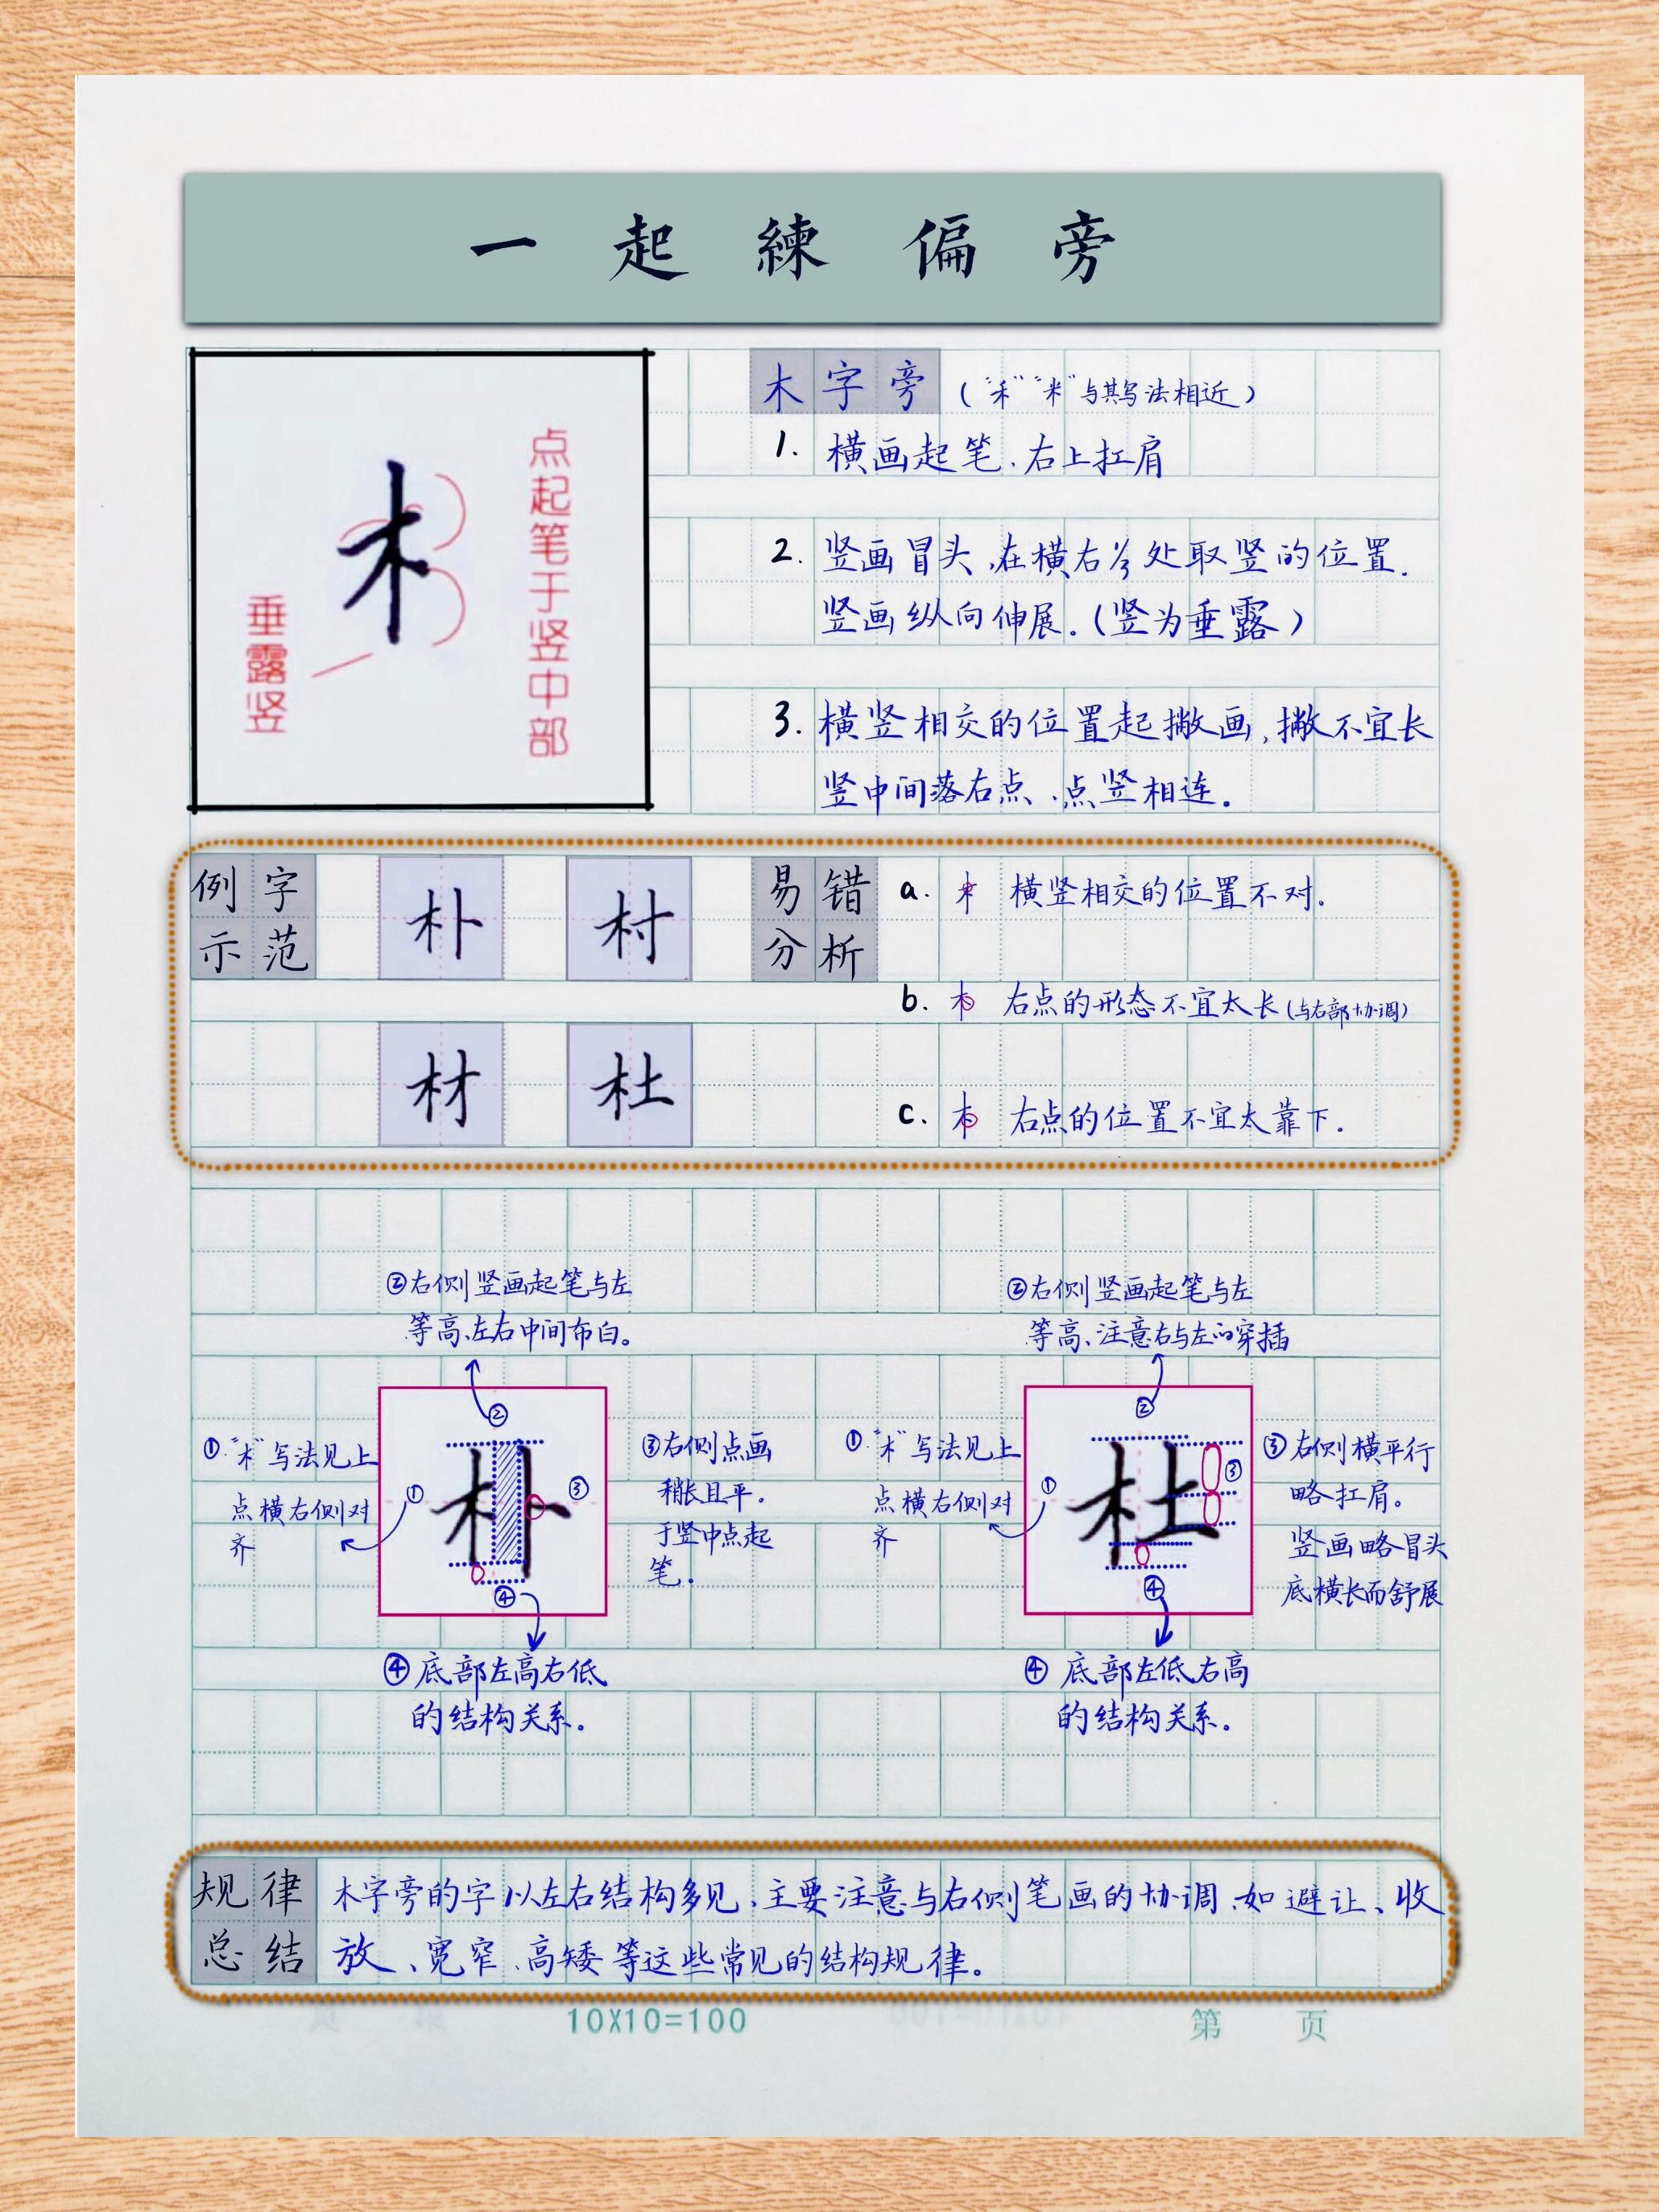 一起練偏旁
点起笔于竖中部
垂露竖
木字旁（“禾”“米”与其写法相近）
1. 横画起笔、右上扛肩
2. 竖画冒头、在横右⅓处取竖的位置.
竖画纵向伸展.（竖为垂露）
3. 横竖相交的位置起撇画，撇不宜长
竖中间落右点、点竖相连。
例字
示范
朴 村
材 杜
易错
分析
a. 木 横竖相交的位置不对.
b. 木 右点的形态不宜太长（与右部协调）
c. 木 右点的位置不宜太靠下.
②右侧竖画起笔与左
等高、左右中间布白。
①“木”写法见上
点横右侧对
齐
① ② ③ ④
朴
③右侧点画
稍长且平.
于竖中点起
笔.
④底部左高右低
的结构关系。
②右侧竖画起笔与左
等高、注意右与左的穿插
①“木”写法见上
点横右侧对
齐
① ② ③ ④
杜
③右侧横平行
略扛肩。
竖画略冒头
底横长而舒展
④底部左低右高
的结构关系。
规律
总结
木字旁的字以左右结构多见、主要注意与右侧笔画的协调、如避让、收
放、宽窄、高矮等这些常见的结构规律。
10X10=100
第 页